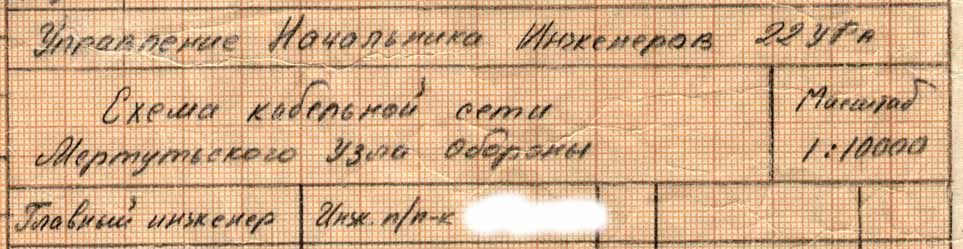 Управление Начальника Инженеров 22 УРа
Схема кабельной сети
Мертутьского Узла Обороны
Масштаб
1:10000
Главный инженер Инж. п/п-к